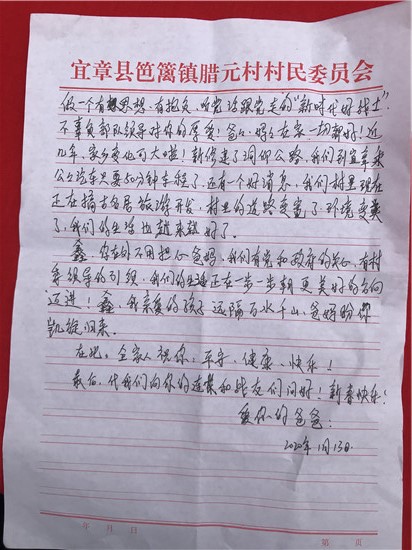 宜章县笆篱镇腊元村村民委员会
做一个有思想、有抱负、听党话跟党走的"新时代好战士"
不辜负部队领导对你的厚爱！爸爸妈妈在家一切都好！近
几年，家乡变化可大啦！新修建了公路，我们到宜章乘
公交汽车只要50分钟车程了，还有一个好消息，我们村里现在
正在搞古民居旅游开发，村里的道路变宽了，环境变美
了，我们的生活也越来越好了。
鑫，你在外不用担心爸妈，我们有党和政府的关心，有村
等领导的引领，我们的生活正在一步一步朝更美好的方向
迈进！鑫，我亲爱的孩子，远隔万水千山，爸妈盼你
凯旋归来。
在此，全家人祝你：平安、健康、快乐！
最后，代我们向你的连长和战友们问好！新春快乐！
爱你的爸爸：
2020年1月13日
年 月 日
第 页